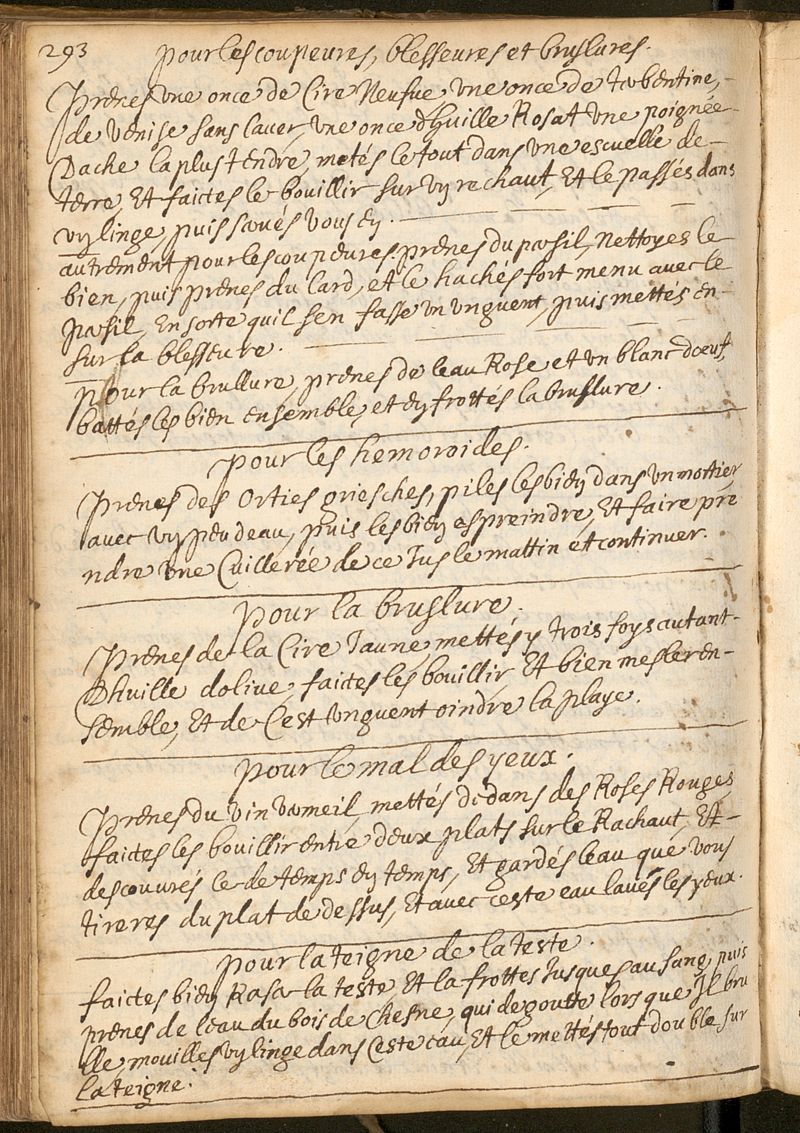 293
pour les coupeures, blesseures et bruslures.
Prenes vne once de Cire Neufue, vne once de terbentine,
de venise sans lauer, vne once d'huille Rosat vne poignée
Dache la plus tendre, metés le tout dans vne escuelle de
terre, Et faictes le bouillir sur vn rechaut, Et le passés dans
vn linge, puis serués vous en.
autrement pour les coupeures, prenes du persil, Nettoyes le
bien, puis prenes du lard, et le hachés fort menu auec le
persil, En sorte quil s'en fasse vn vnguent, puis mettés en
sur la blesseure.
pour la brullure, prenes de leau Rose et vn blanc dœuf,
battés les bien ensemble, et en frottés la bruslure.
pour les hemoroides.
Prenes des Orties griesches, piles les bien dans vn mortier
auec vn peu deau, puis les bien espreindre, Et faire pre
ndre vne Cuillerée de ce Jus le mattin et continuer.
pour la bruslure.
Prenes de la Cire Jaune, mettés y trois foys autant
Dhuille doliue, faictes les bouillir, Et bien mesler en-
semble, Et de C'est vnguent oindre la playe.
pour le mal des yeux.
Prenes du vin vermeil, mettés dedans des Roses Rouges,
faictes les bouillir entre deux plats sur le Rachaut, Et
descouurés le de temps en temps, Et gardés leau que vous
tireres du plat de dessus, Et auec ceste eau laués les yeux.
pour la teigne de la teste.
faictes bien Raser la teste Et la frottes Jusques au sang, puis
prenes de leau du bois de Chesne, qui degoutte lors que Jl bru
lle, mouilles vn linge dans Ceste eau, Et le mettés tout double sur
la teigne.